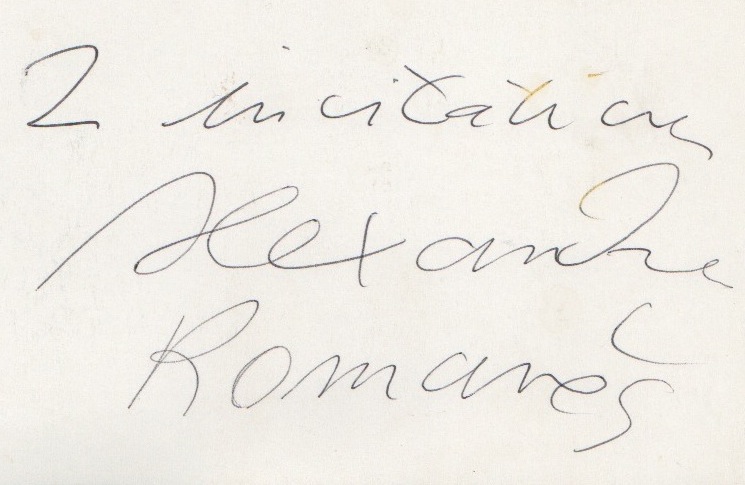 2 invitations
Alexandre
Romanès